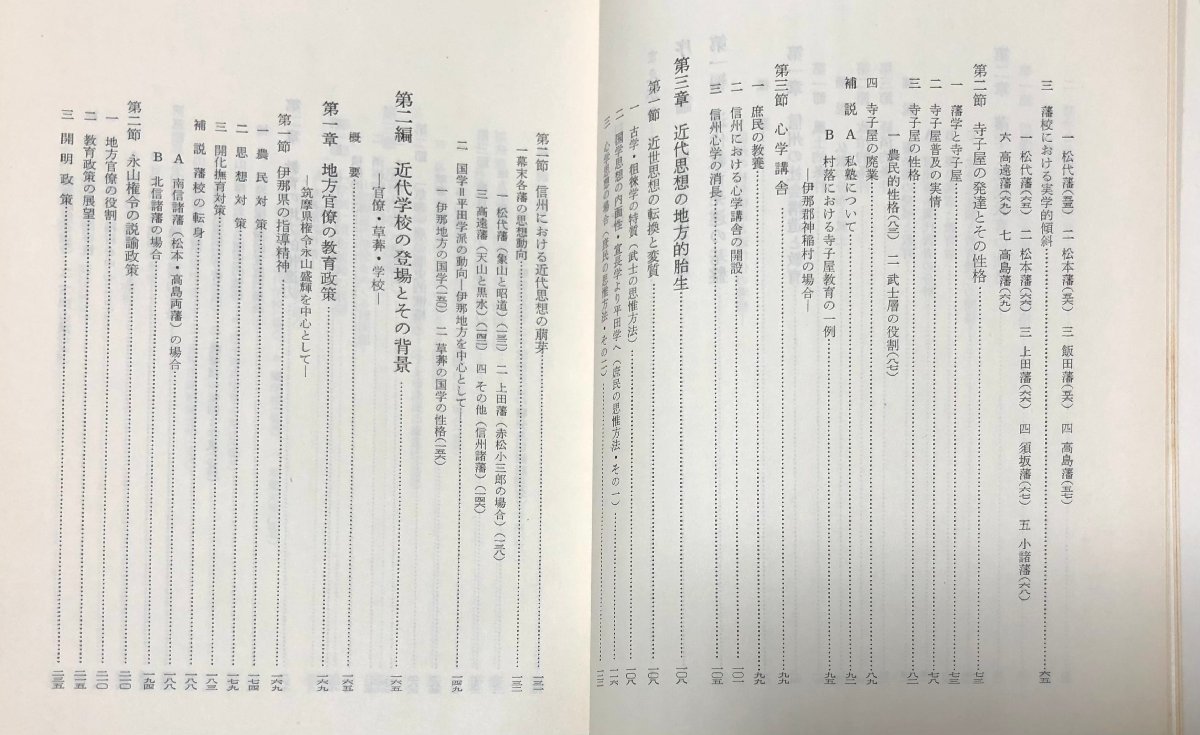 一 松代藩(五五) 二 松本藩(五六) 三 飯田藩(五六) 四 高島藩(五七)
三 藩校における実学的傾斜……六五
一 松代藩(六五) 二 松本藩(六六) 三 上田藩(六六) 四 須坂藩(六七) 五 小諸藩(六八)
六 高遠藩(六九) 七 高島藩(六九)
第二節 寺子屋の発達とその性格……七三
一 藩学と寺子屋……七三
二 寺子屋普及の実情……七八
三 寺子屋の性格……八二
一 農民的性格(八三) 二 武士層の役割(八七)
四 寺子屋の廃業……八九
補説 A 私塾について……九二
B 村落における寺子屋教育の一例……九五
―伊那郡神稲村の場合―
第三節 心学講舎……九九
一 庶民の教養……九九
二 信州における心学講舎の開設……一〇一
三 信州心学の消長……一〇五
第三章 近代思想の地方的胎生……一〇八
第一節 近世思想の転換と変質……一〇八
一 古学・徂徠学の特質(武士の思惟方法)……一〇八
二 国学思想の内面性・宣長学より平田学へ(庶民の思惟方法・その一)……一一六
三 心学思想の場合(庶民の思惟方法・その二)……一二三
第二節 信州における近代思想の萠芽……一三一
一 幕末各藩の思想動向……一三二
一 松代藩(象山と昭道)(一三二) 二 上田藩(赤松小三郎の場合)(一三八)
三 高遠藩(天山と黒水)(一四二) 四 その他(信州諸藩)(一四六)
二 国学＝平田学派の動向―伊那地方を中心として―……一四九
一 伊那地方の国学(一五〇) 二 草莽の国学の性格(一五六)
第二編 近代学校の登場とその背景……一六五
―官僚・草莽・学校―
概要……一六五
第一章 地方官僚の教育政策……一六九
―筑摩県権令永山盛輝を中心として―
第一節 伊那県の指導精神……一六九
一 農民対策……一七四
二 思想対策……一七九
三 開化撫育対策……一八三
補説 藩校の転身……一八八
A 南信諸藩(松本・高島両藩)の場合……一八八
B 北信諸藩の場合……一九四
第二節 永山権令の説諭政策……二一〇
一 地方官僚の役割……二一〇
二 教育政策の展望……二二五
三 開明政策……二三五